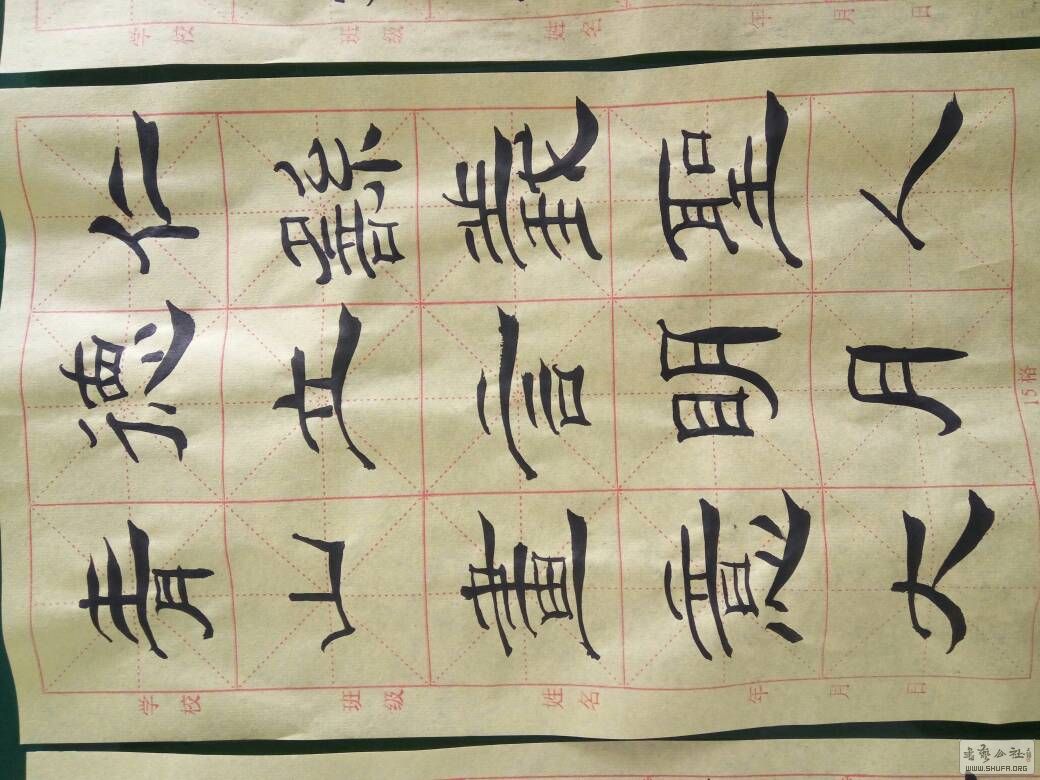 仁聖人
德立言明月
青山畫意大
学校 班级 姓名 年 月 日
15格
学校 班级 姓名 年 月 日
书艺公社
WWW.SHUFA.ORG